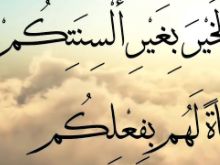 الخَيرَ بِغَيرِ أَلسِنَتِكُم
لَهُم بِفِعلِكُم